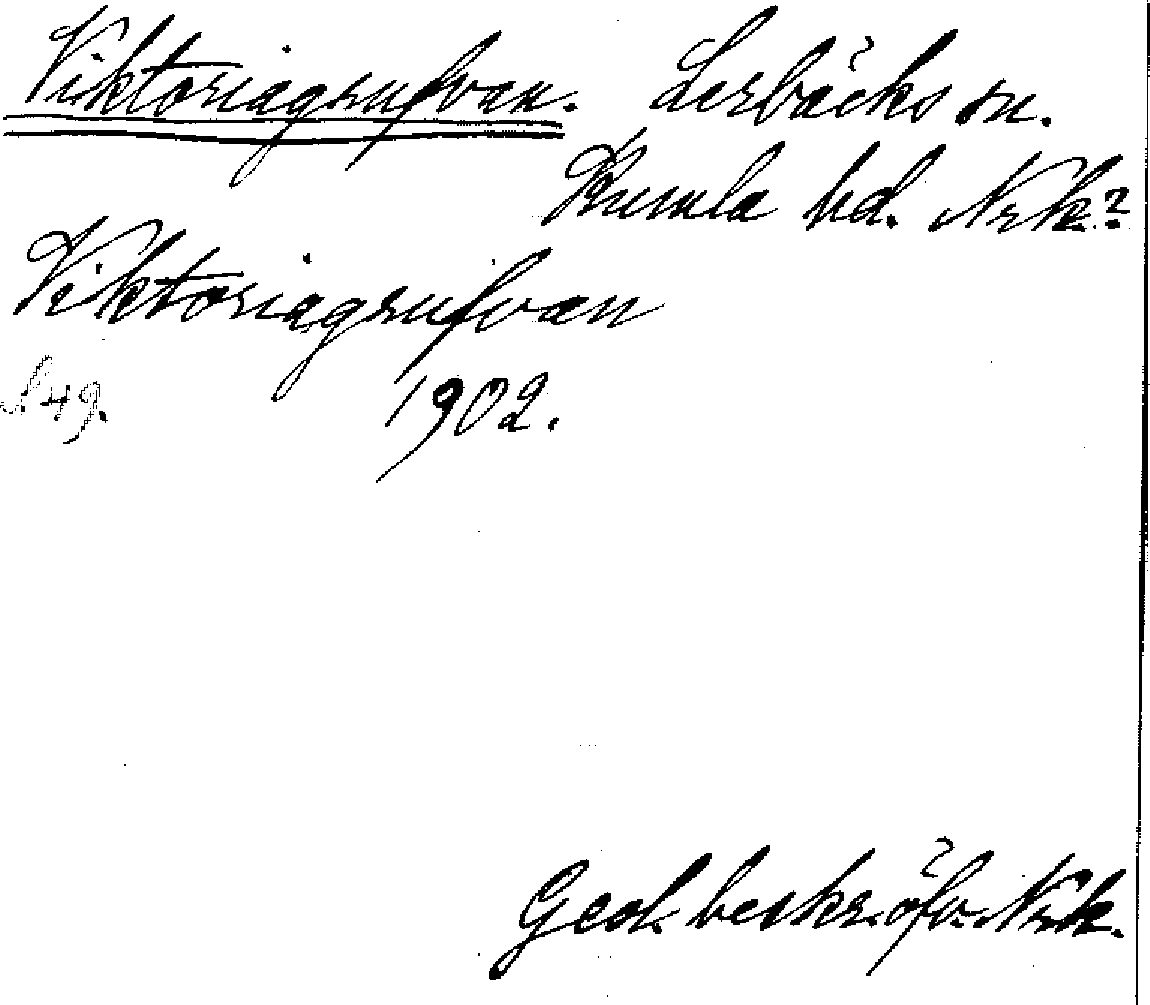 Viktoriagrufvan. Lerbäcks sn.
Kumla hd. Nrk.
Viktoriagrufvan
S. 49. 1902.
Geol. beskr. öfv. Nrk.